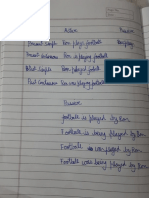 Active Passive
Present Simple Ram plays football
Present Continuous Ram is playing football
Past Simple Ram played football
Past Continuous Ram was playing football
Passive
football is played by Ram
Football is being played by Ram
Football was played by Ram
Football was being played by Ram